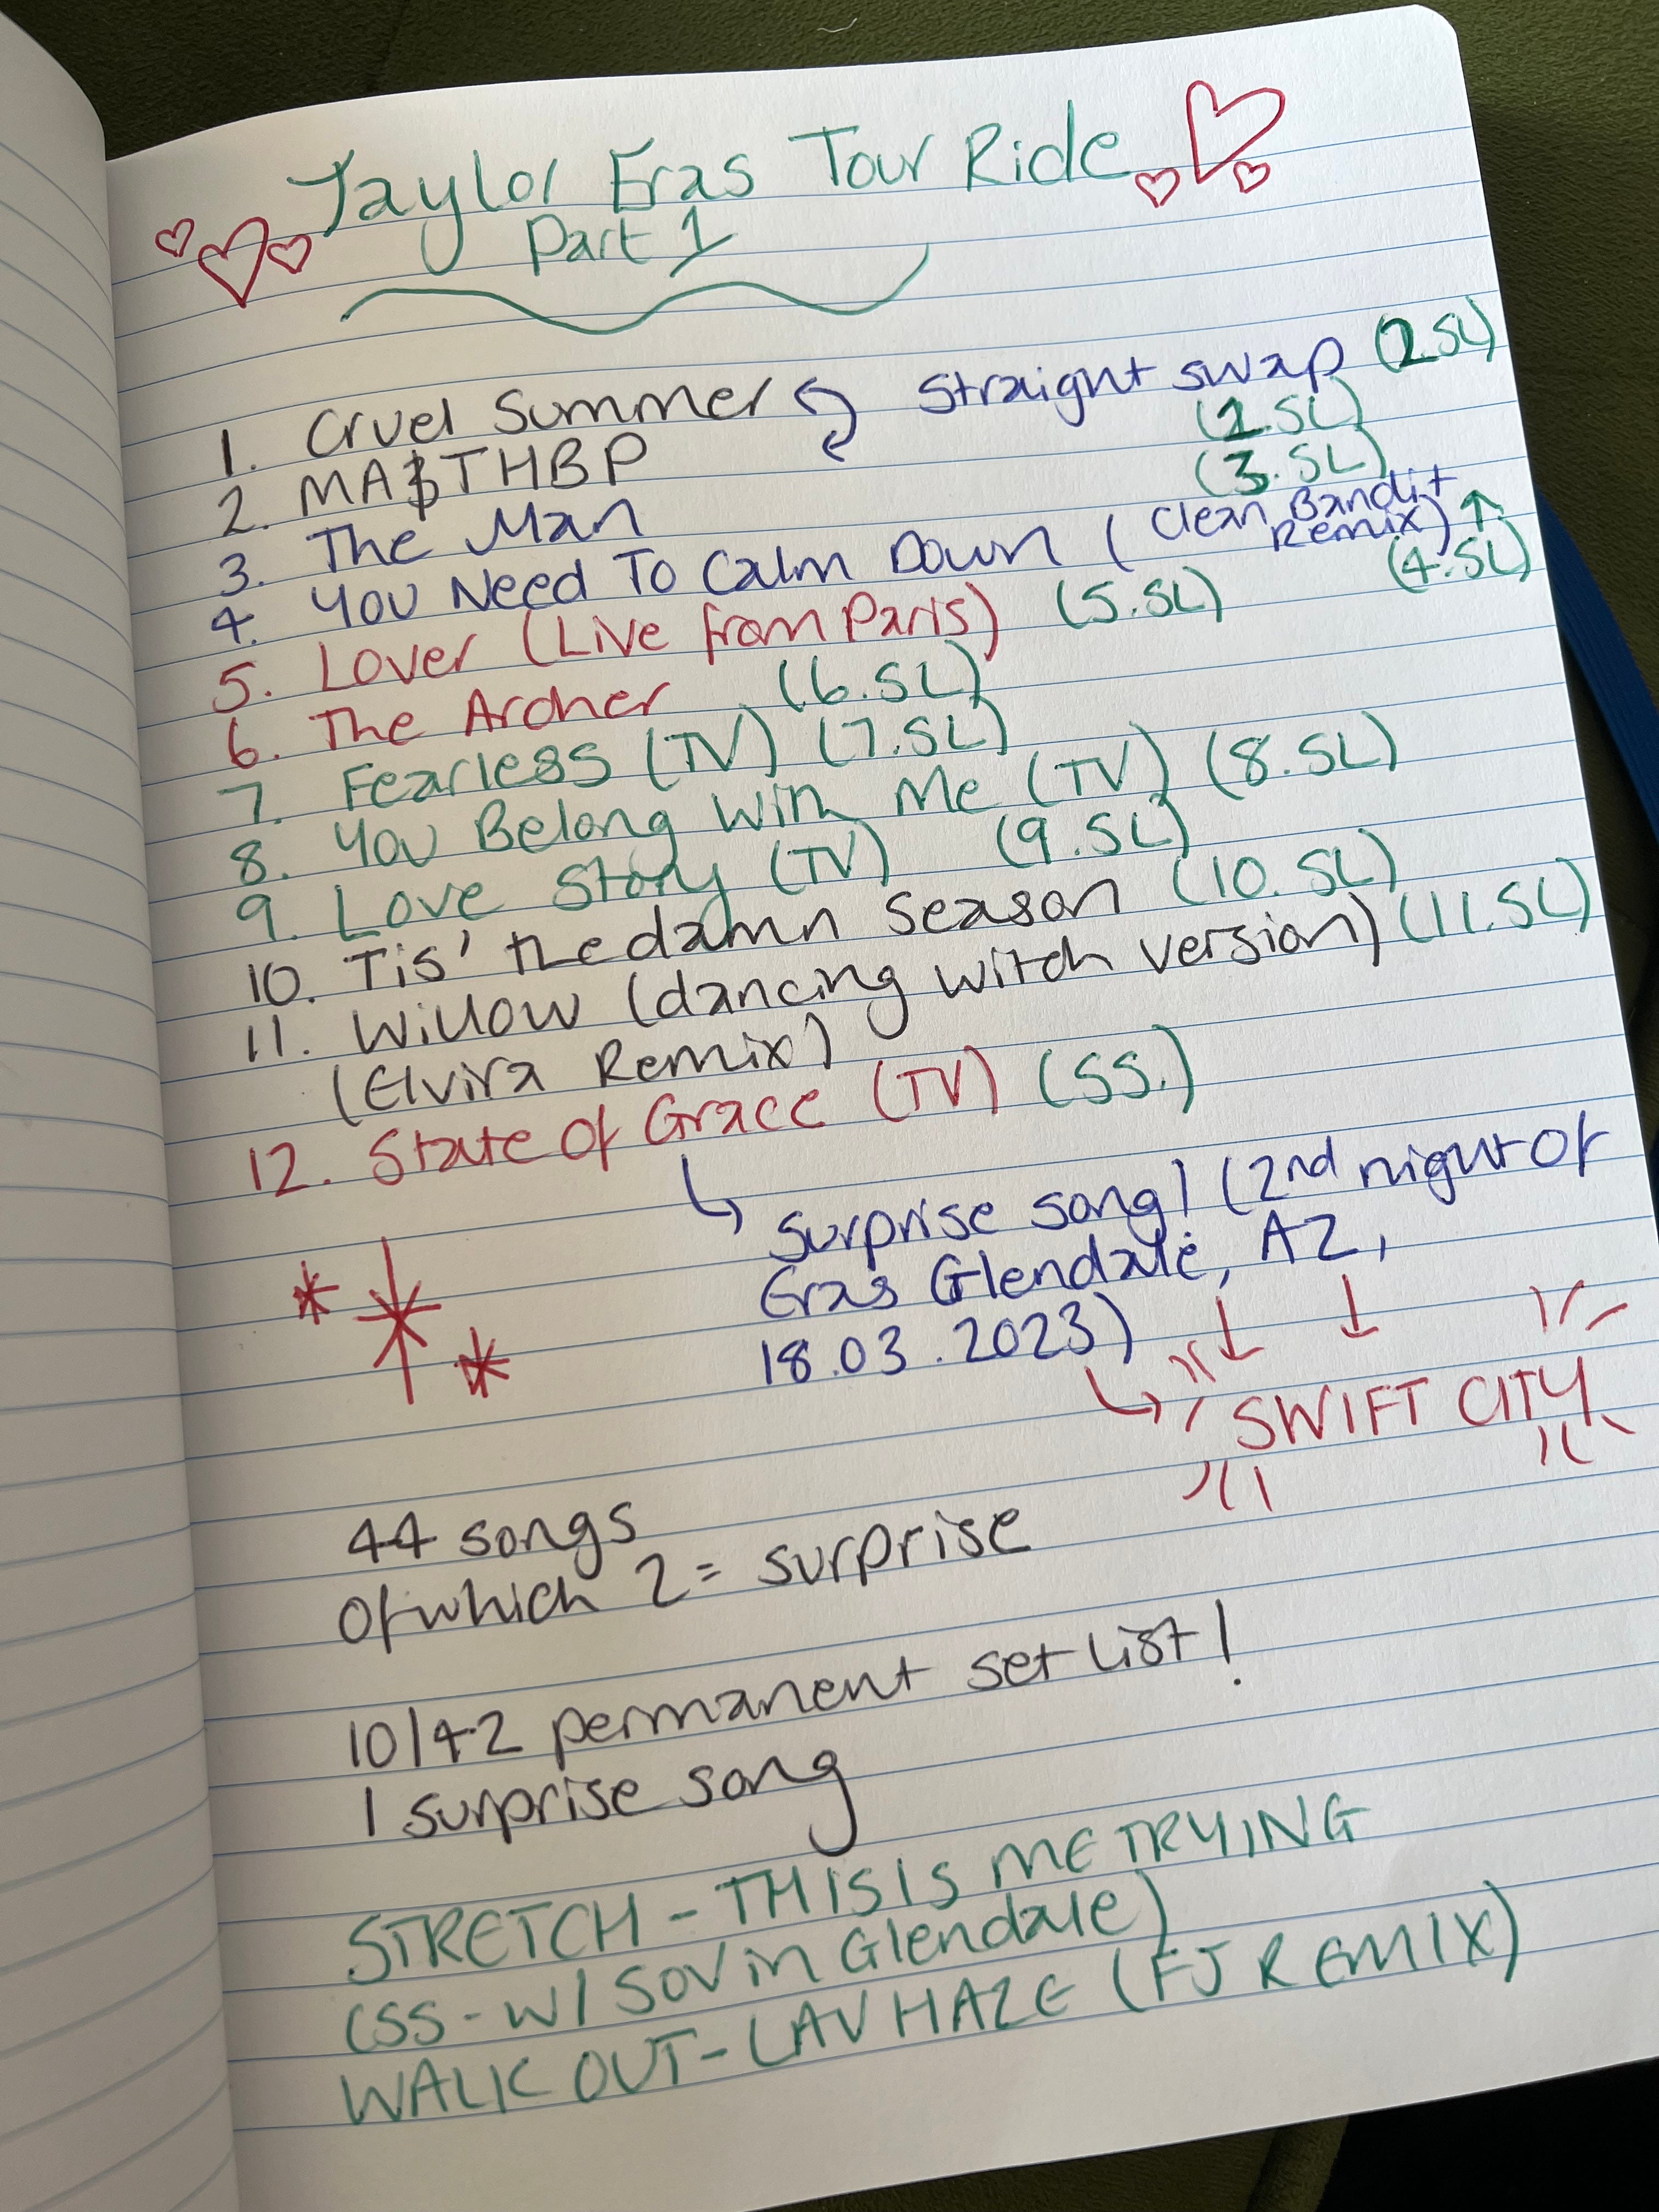 Taylor Eras Tour Ride
Part 1
1. Cruel Summer straight swap (2.SL)
2. MA$THBP (1.SL)
3. The Man (3.SL)
4. You Need To Calm Down (Clean Bandit Remix) (4.SL)
5. Lover (Live from Paris) (5.SL)
6. The Archer (6.SL)
7. Fearless (TV) (7.SL)
8. You Belong With Me (TV) (8.SL)
9. Love Story (TV) (9.SL)
10. Tis' the damn season (10.SL)
11. Willow (dancing witch version) (11.SL)
(Elvira Remix)
12. State Of Grace (TV) (SS.)
surprise song! (2nd night of
Eras Glendale, AZ,
18.03.2023)
SWIFT CITY
44 songs
of which 2 = surprise
10/42 permanent set list!
1 surprise song
STRETCH - THIS IS ME TRYING
(SS - W/ SOV in Glendale)
WALK OUT - LAV HAZE (FJ REMIX)